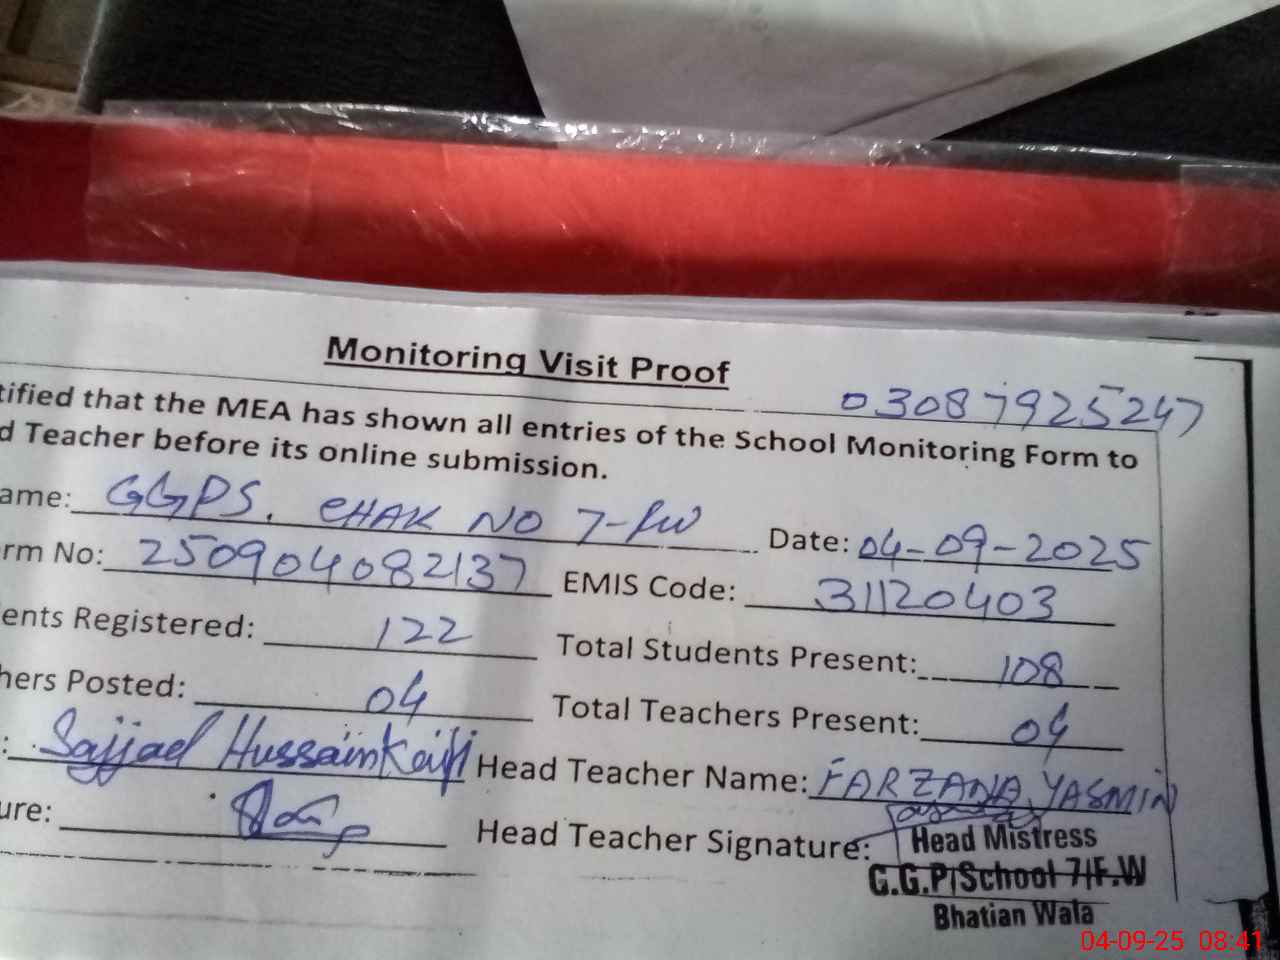 Monitoring Visit Proof
03087925247
tified that the MEA has shown all entries of the School Monitoring Form to
d Teacher before its online submission.
ame: GGPS. CHAK NO 7-FW Date: 04-09-2025
rm No: 250904082137 EMIS Code: 31120403
ents Registered: 122 Total Students Present: 108
hers Posted: 04 Total Teachers Present: 04
: Sajjad Hussain Kaifi Head Teacher Name: FARZANA YASMIN
ure: Head Teacher Signature:
Head Mistress
G.G.P/School 7/F.W
Bhatian Wala
04-09-25 08:41